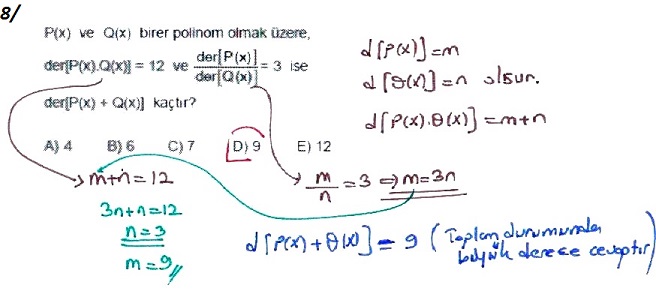 8/
P(x) ve Q(x) birer polinom olmak üzere,
der[P(x).Q(x)] = 12 ve der[P(x)] / der[Q(x)] = 3 ise
der[P(x) + Q(x)] kaçtır?
A) 4 B) 6 C) 7 D) 9 E) 12
d[P(x)] = m
d[Q(x)] = n olsun.
d[P(x).Q(x)] = m+n
m+n = 12
3n+n = 12
n = 3
m = 9
m/n = 3 ⇒ m = 3n
d[P(x)+Q(x)] = 9 (Toplam durumunda
büyük derece cevaptır)